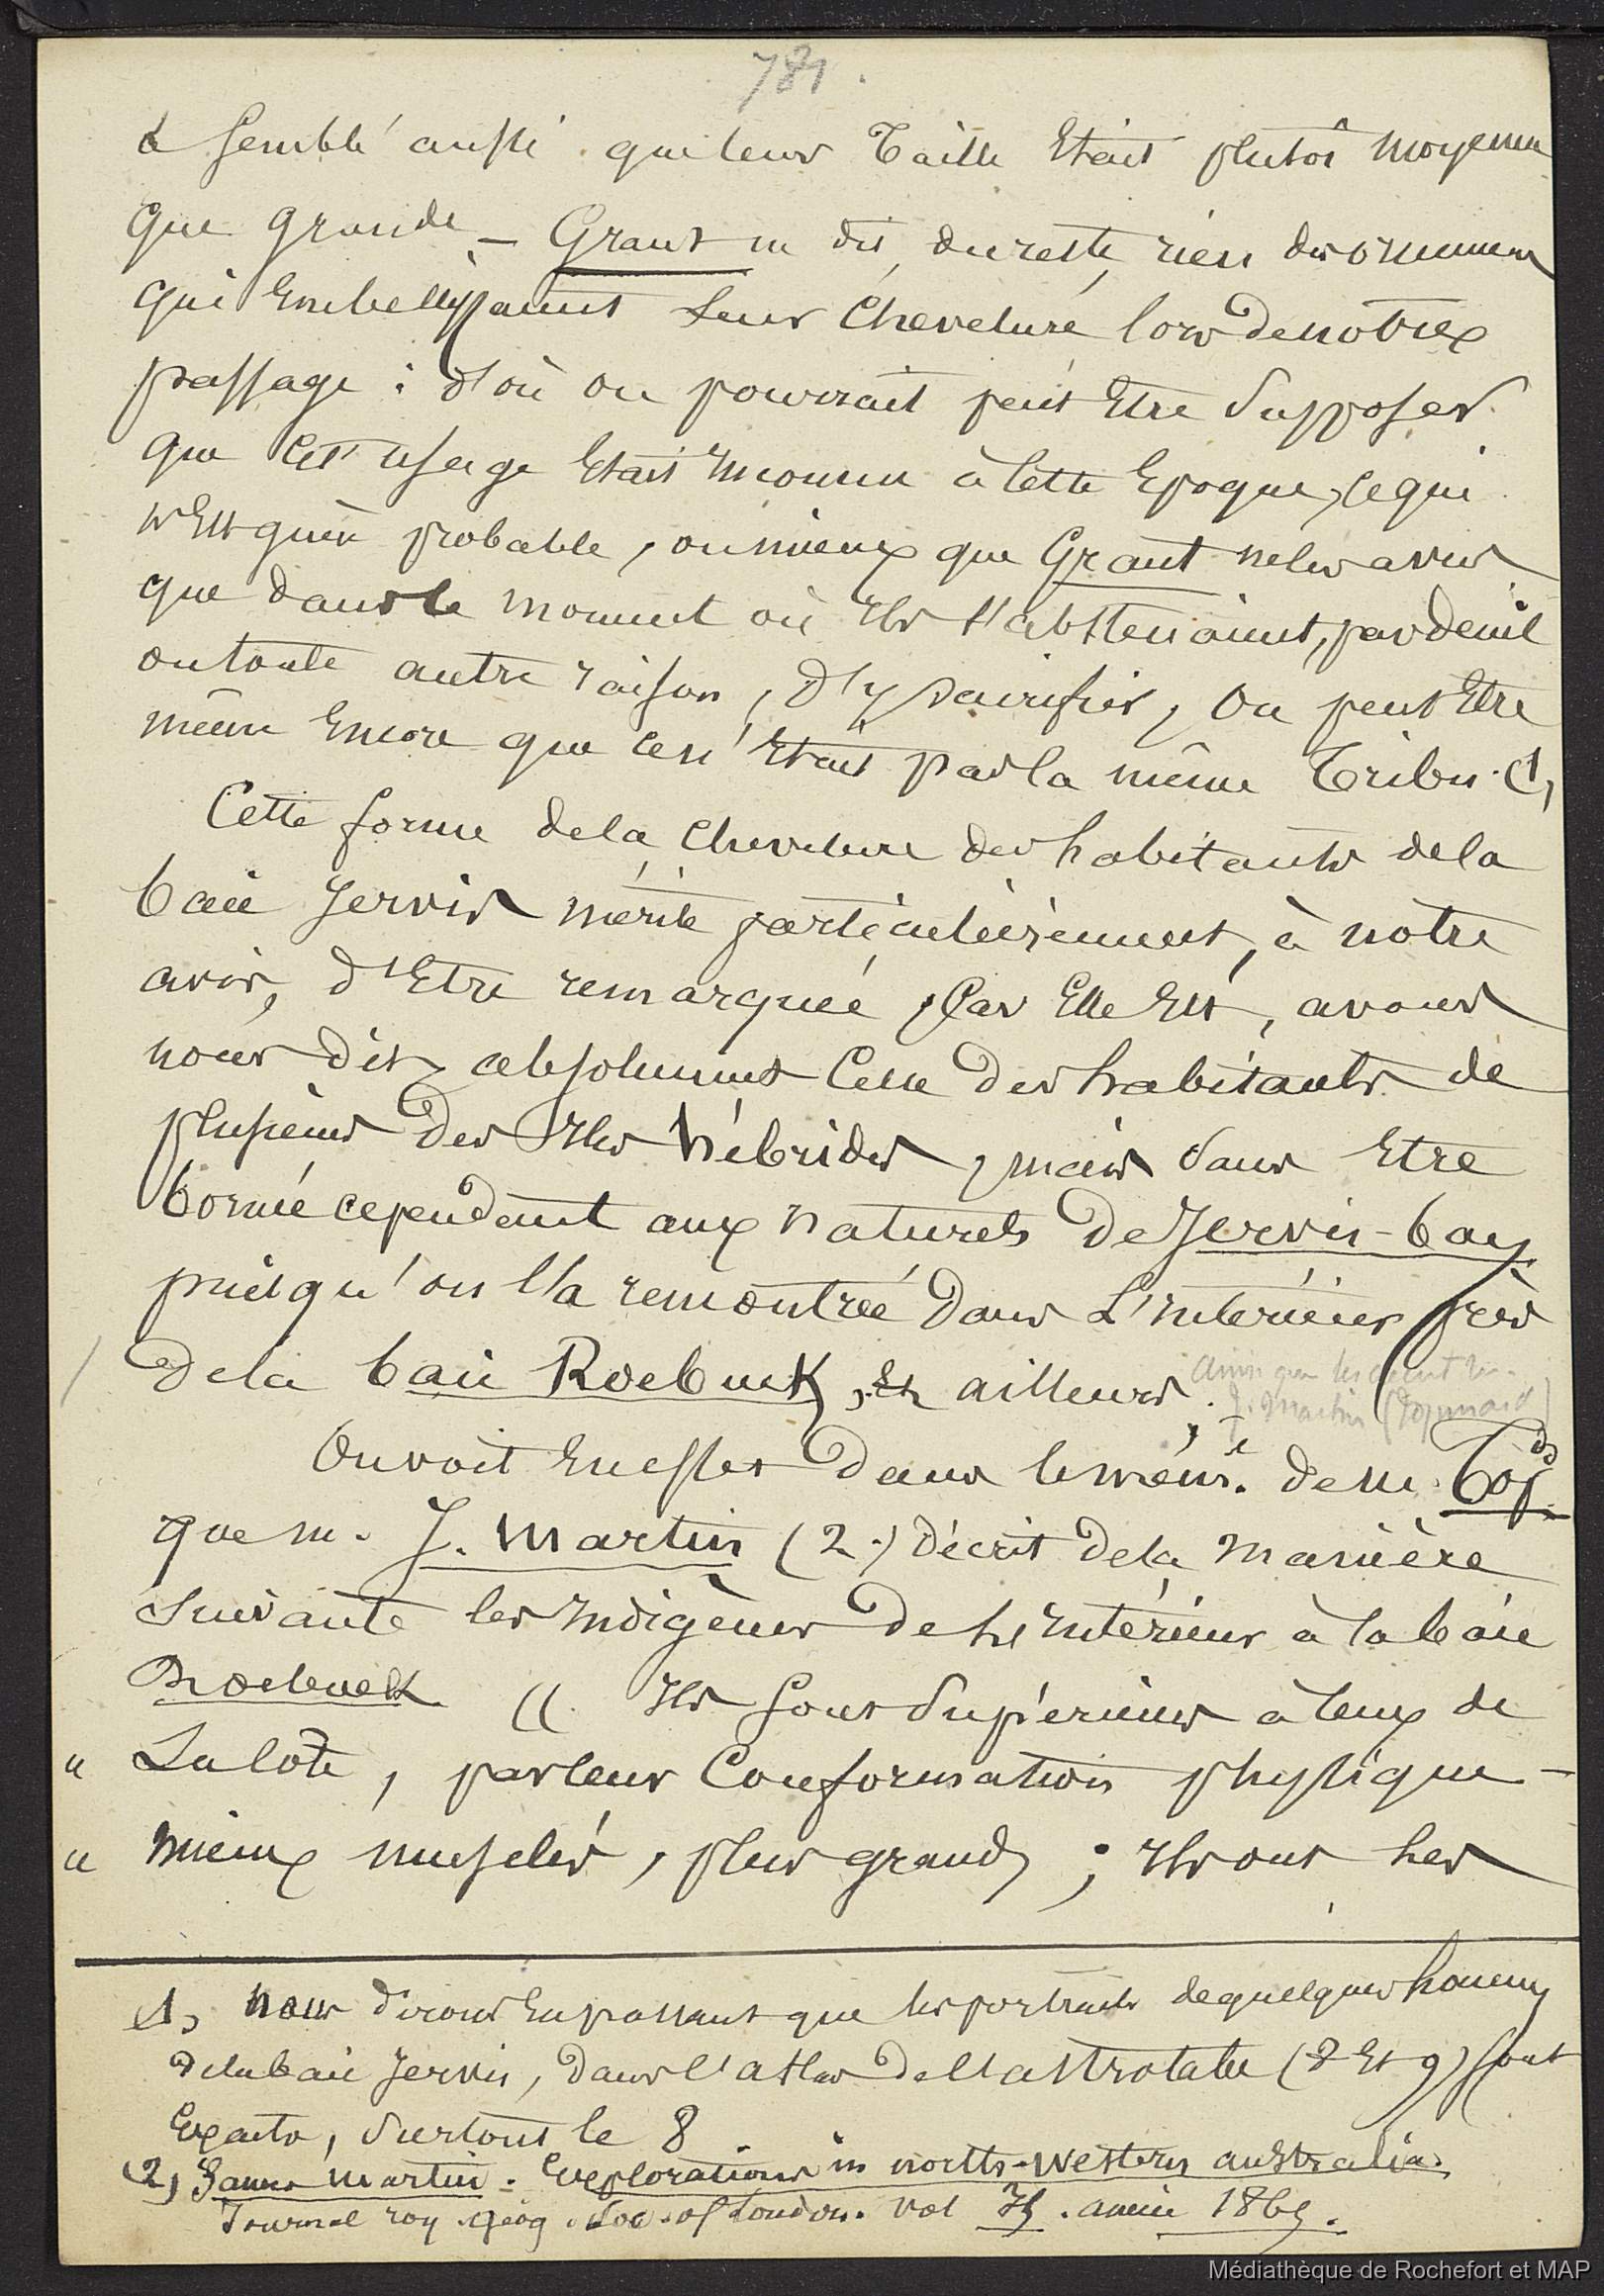 781.
a semblé aussi que leur Taille Etait plutôt moyenne
que grande – Grant ne dit, du reste, rien des ornemens
qui Embellissaient Leur Chevelure lors de notre
passage : d'où on pourrait peut Etre Supposer
que cet usage Etait inconnu à cette Epoque, ce qui
n'Est guère probable, ou mieux que Grant ne les a vus
que dans le moment où Ils s'abstenaient, par deuil
ou toute autre raison, d'y sacrifier, ou peut Etre
même Encore que ce n'Etait pas la même Tribu. (1)
Cette forme de la Chevelure des habitants de la
baie Jervis mérite particulièrement, à notre
avis, d'Etre remarquée, Car Elle Est, avons
nous dit, absolument Celle des habitants de
plusieurs des Iles Hébrides, mais sans Etre
bornée cependant aux naturels de Jervis-bay
puisqu'on l'a rencontrée dans L'intérieur près
de la baie Roebuck, Et ailleurs.
ainsi que les décrit m.
J. Martin (Topinard)
On voit En effet dans le mém.e de m. Top.d
que m. J. Martin (2.) décrit de la manière
suivante les Indigènes de L'Intérieur à la baie
Roebuck (( Ils Sont Supérieurs à Ceux de
" La Côte, par leur Conformation physique –
" mieux musclés, plus grands ; Ils ont les
(1) nous dirons En passant que les portraits de quelques hommes
de la baie Jervis, dans l'atlas de l'astrolabe (8 Et 9) sont
Exacts, Surtout le 8
(2) James Martin. Explorations in north-western australia.
Journal roy. géog. Soc. of London. vol 35. année 1865.
Médiathèque de Rochefort et MAP